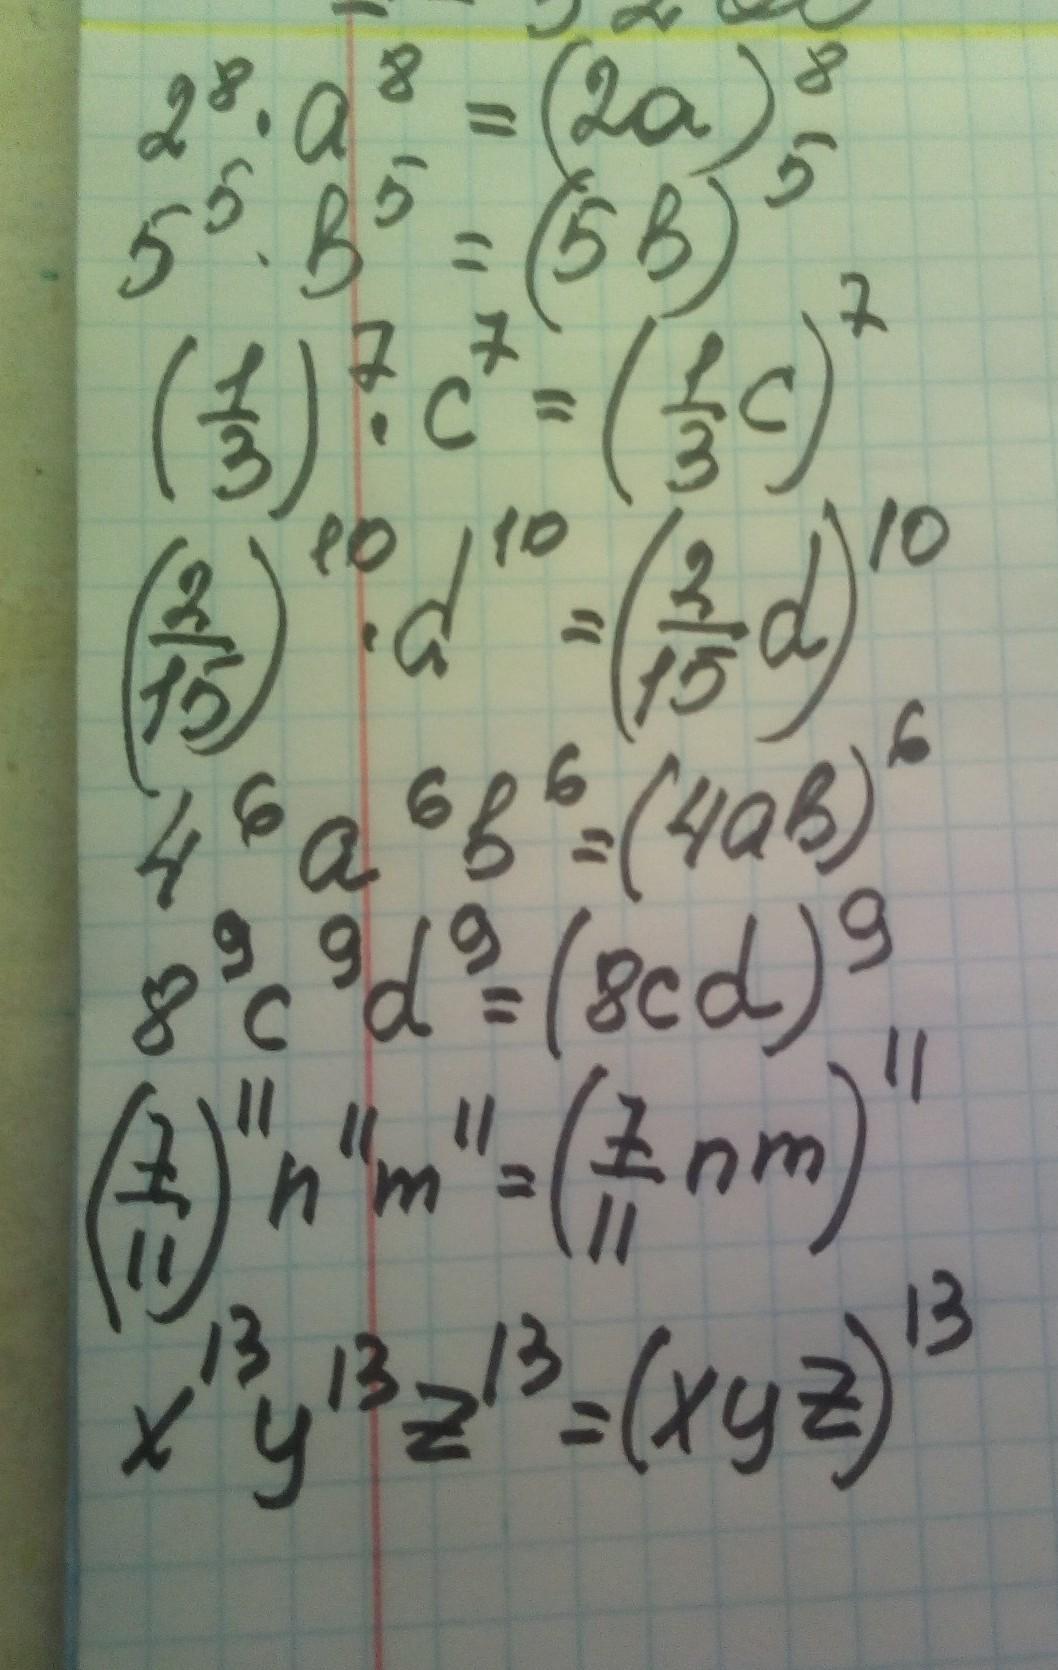 2⁸ · a⁸ = (2a)⁸
5⁵ · b⁵ = (5b)⁵
(1/3)⁷ · c⁷ = (1/3 c)⁷
(2/15)¹⁰ · d¹⁰ = (2/15 d)¹⁰
4⁶a⁶b⁶ = (4ab)⁶
8⁹c⁹d⁹ = (8cd)⁹
(7/11)¹¹n¹¹m¹¹ = (7/11 nm)¹¹
x¹³y¹³z¹³ = (xyz)¹³